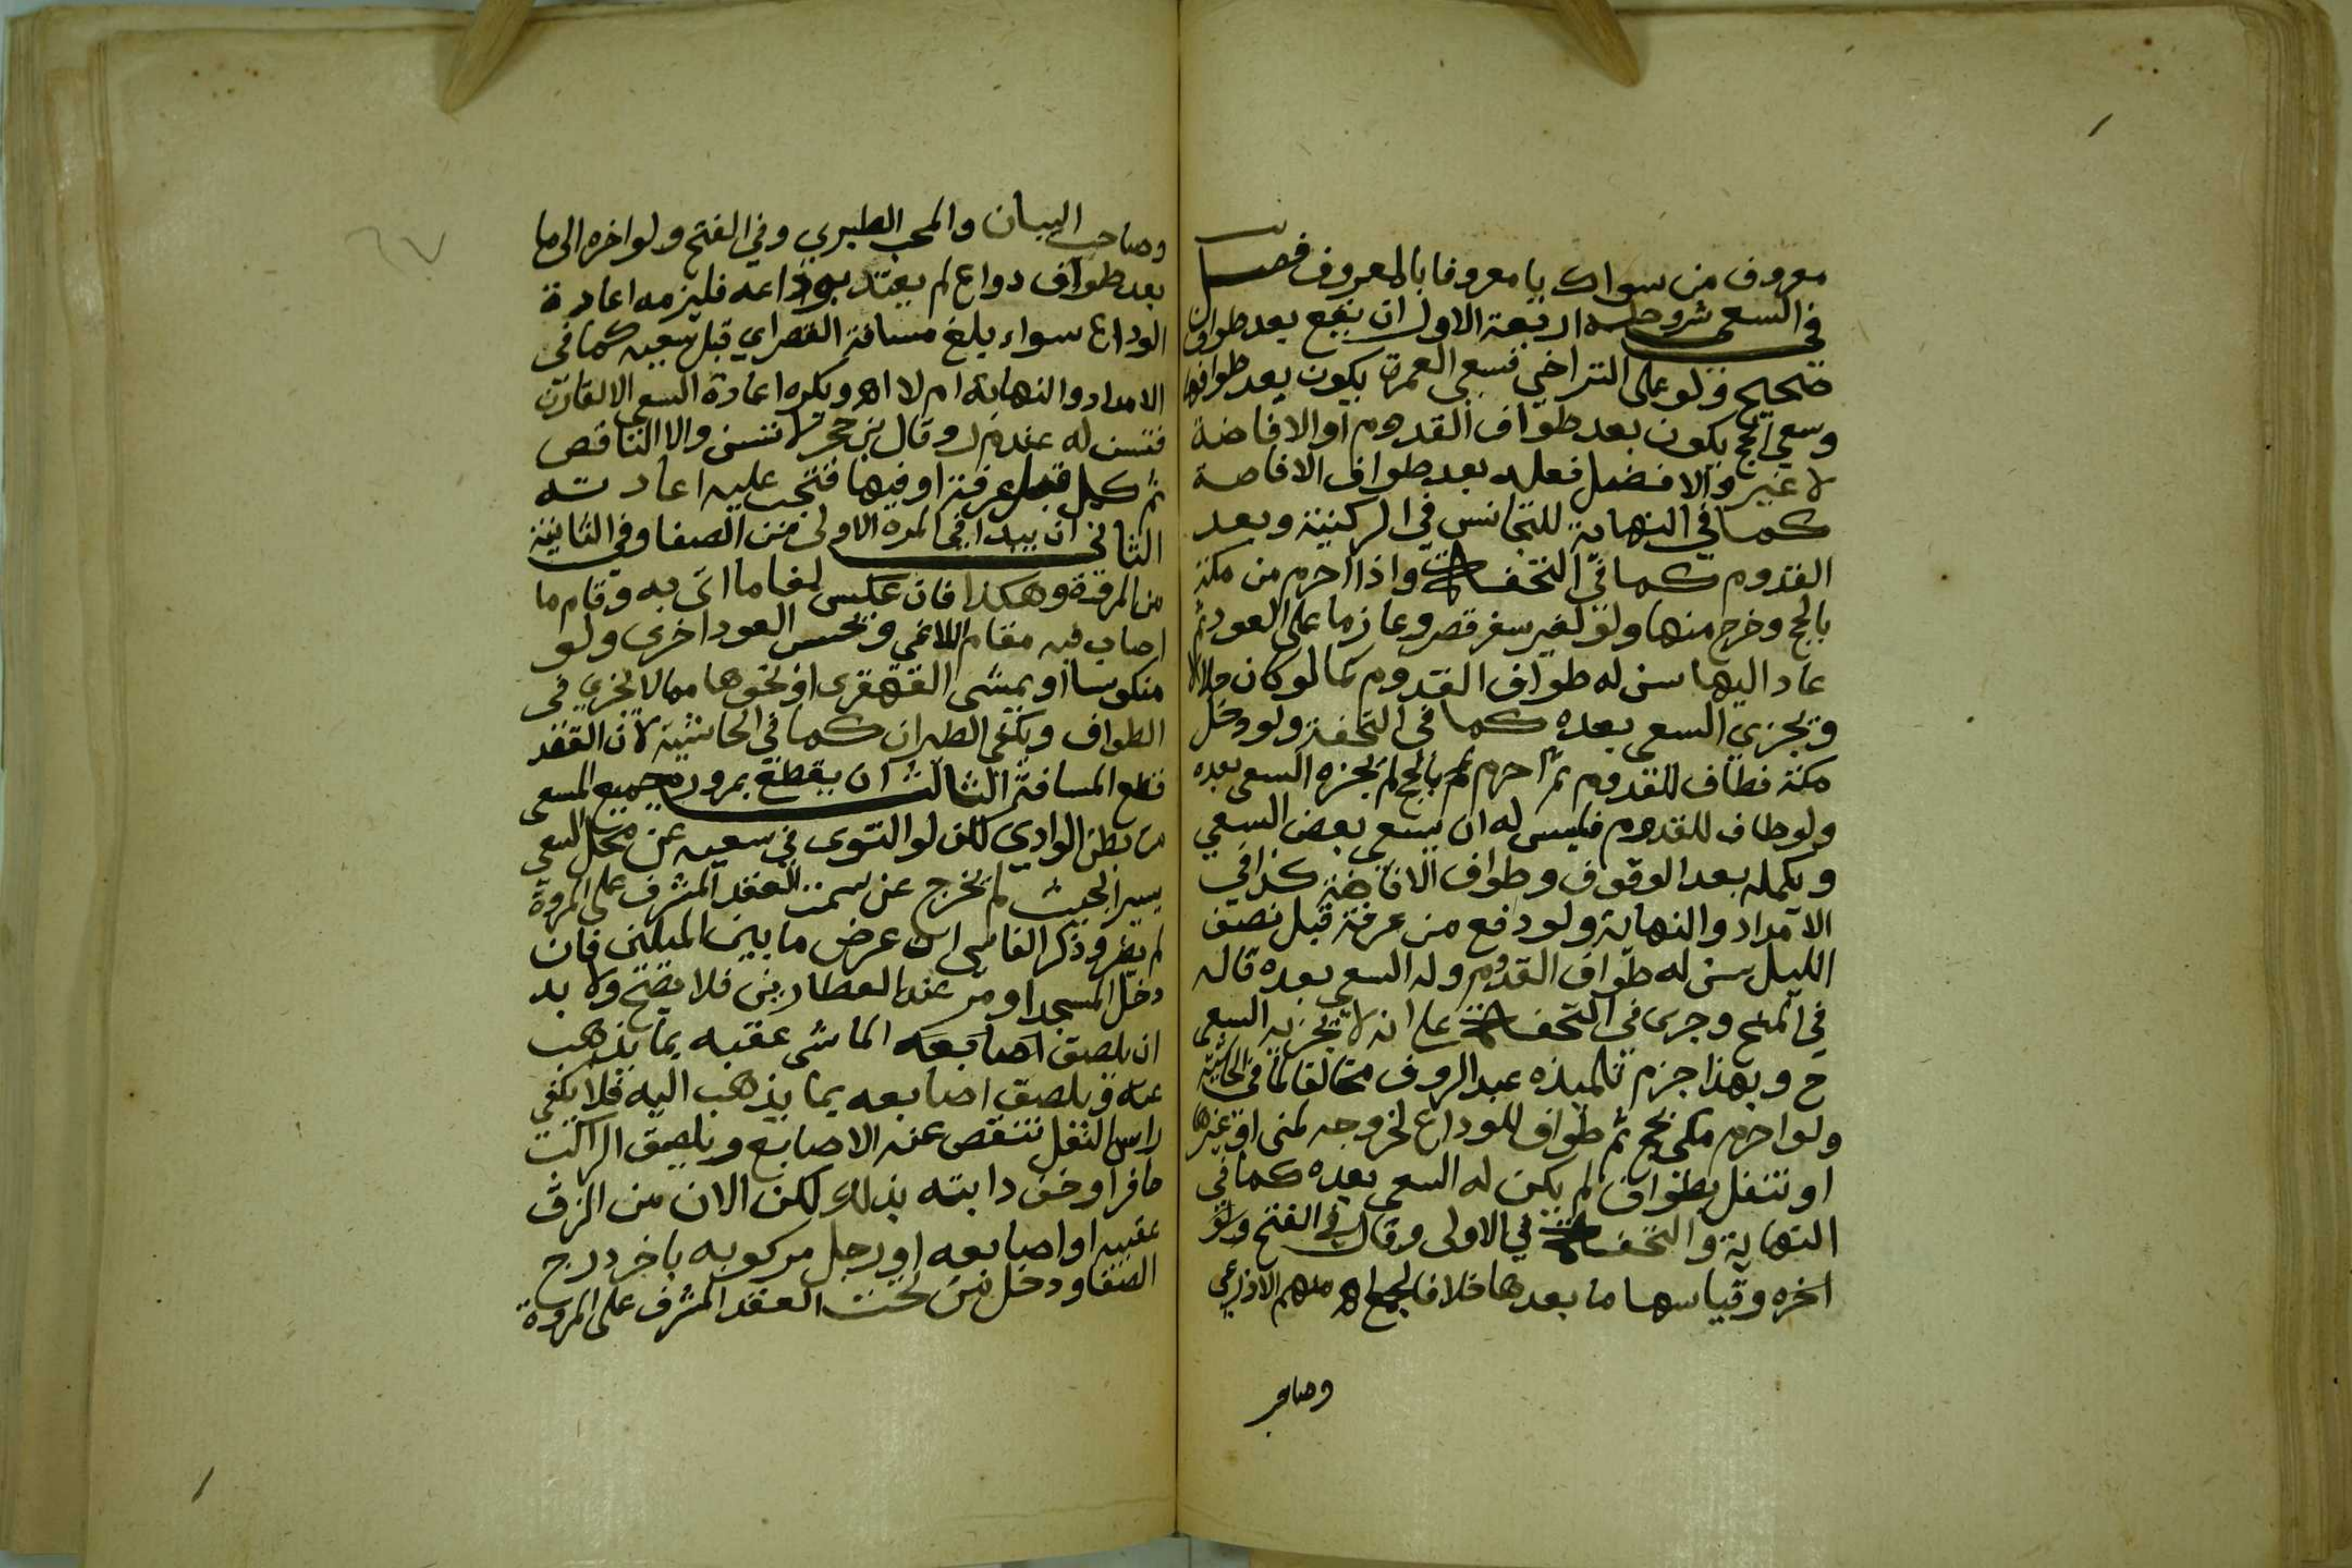 معروف من سواك يا معروفا بالمعروف فصل
في السعي شروطه اربعة الاول ان يقع بعد طواف
صحيح ولو على التراخي فسعي العمرة يكون بعد طوافها
وسعي الحج يكون بعد طواف القدوم او الافاضة
لا غير والافضل فعله بعد طواف الافاضة
كما في النهاية للتجانس في الركنية وبعد
القدوم كما في التحفة واذا احرم من مكة
بالحج وخرج منها ولو لغير سفر قصر وعازما على العود ثم
عاد اليها سن له طواف القدوم كما لو كان حلالا
ويجزي السعي بعده كما في التحفة ولو دخل
مكة فطاف للقدوم ثم احرم بالحج لم يجزه السعي بعده
ولو طاف للقدوم فليس له ان يسعى بعض السعي
ويكمله بعد الوقوف وطواف الافاضة كذا في
الامداد والنهاية ولو دفع من عرفة قبل نصف
الليل سن له طواف القدوم وله السعي بعده قاله
في المنح وجرى في التحفة على انه لا يجزيه السعي
ح وبهذا جزم تلميذه عبد الروف مخالفا لما في الحاشية
ولو احرم مكي بحج ثم طواف للوداع لخروجه لمنى او غيرها
او تنفل بطواف لم يكن له السعي بعده كما في
النهاية والتحفة في الاولى وقال في الفتح ولو
اخره وقياسها ما بعدها خلافا لجمع اهـ منهم الاذرعي
وصاحب
وصاحب البيان والمحب الطبري وفي الفتح ولو اخره الى ما
بعد طواف وداع لم يعتد بوداعه فليزمه اعادة
الوداع سواء بلغ مسافة القصر اي قبل سعيه كما في
الامداد والنهاية ام لا اهـ ويكره اعادة السعي الا لقارن
فتسن له عند م ر وقال بن حجر لا تسن والا الناقص
ثم كمل قبل عرفة او فيها فتجب عليه اعادته
الثاني ان يبدا في المرة الاولى من الصفا وفي الثانية
من المروة وهكذا فان عكس لغا ما اتى به وقام ما
اصاب فيه مقام اللاغي ويحسب العود اخرى ولو
منكوسا او بمشي القهقرى او نحوها مما لا يجزي في
الطواف ويكفي الطيران كما في الحاشية لان القصد
قطع المسافة الثالث ان يقطع بمروره جميع المسعى
من بطن الوادي لكن لو التوى في سعيه عن محل السعي
يسيرا بحيث لم يخرج عن سمت العقد المشرف على المروة
لم يضر وذكر الفاسي ان عرض ما بين الميلين فان
دخل المسجد او مر عند العطارين فلا يصح ولا بد
ان يلصق اصابعه الماشي عقبه بما يذهب
عنه ويلصق اصابعه بما يذهب اليه فلا يكفي
راس النعل تنقص عنه الاصابع ويلصق الراكب
حافرا او خف دابته بذلك لكن الان من الزق
عقبيه او اصابعه او رجل مركوبه باخر درج
الصفا ودخل من تحت العقد المشرف على المروة